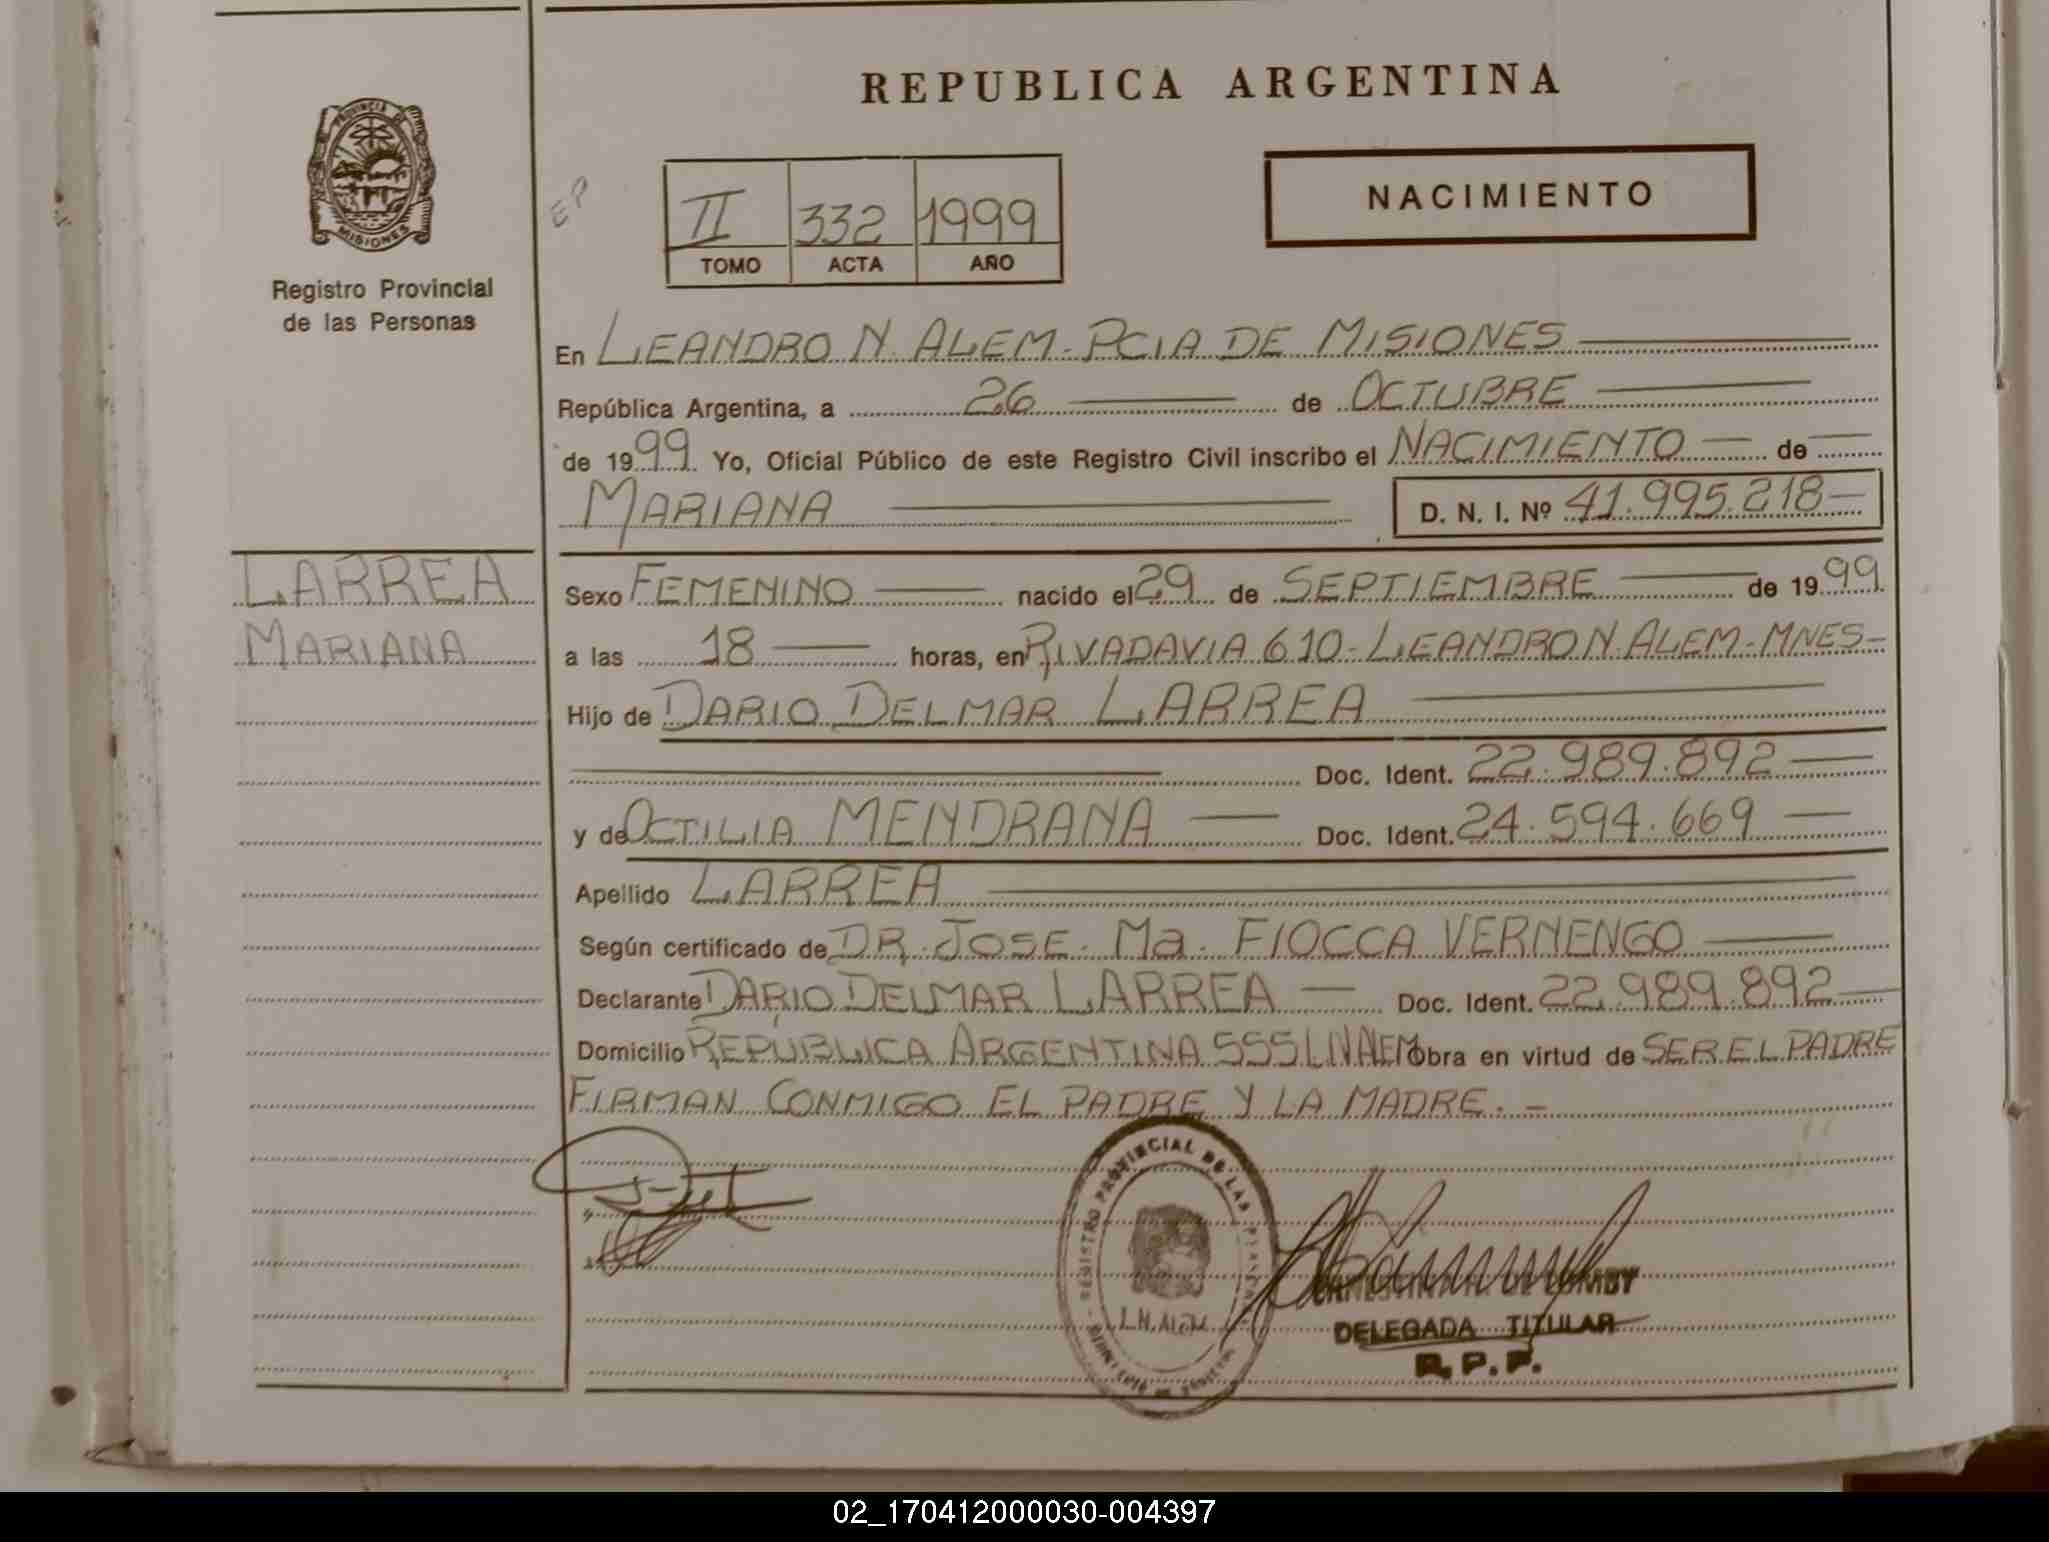 REPUBLICA ARGENTINA
PROVINCIA DE
MISIONES
Registro Provincial
de las Personas
EP
II 332 1999
TOMO ACTA AÑO
NACIMIENTO
En LEANDRO N. ALEM - PCIA DE MISIONES
República Argentina, a 26 de OCTUBRE
de 1999 Yo, Oficial Público de este Registro Civil inscribo el NACIMIENTO de
MARIANA D. N. I. Nº 41.995.218
LARREA
MARIANA
Sexo FEMENINO nacido el 29 de SEPTIEMBRE de 1999
a las 18 horas, en RIVADAVIA 610 - LEANDRO N. ALEM - MNES -
Hijo de DARIO DELMAR LARREA
Doc. Ident. 22.989.892
y de OCTILIA MENDRANA Doc. Ident. 24.594.669
Apellido LARREA
Según certificado de DR. JOSE Ma. FIOCCA VERNENGO
Declarante DARIO DELMAR LARREA Doc. Ident. 22.989.892
Domicilio REPÚBLICA ARGENTINA 555 L.N.ALEM obra en virtud de SER EL PADRE
FIRMAN CONMIGO EL PADRE Y LA MADRE. -
REGISTRO PROVINCIAL DE LAS
L.N. Alem
DELEGADA TITULAR
R. P. P.
02_170412000030-004397